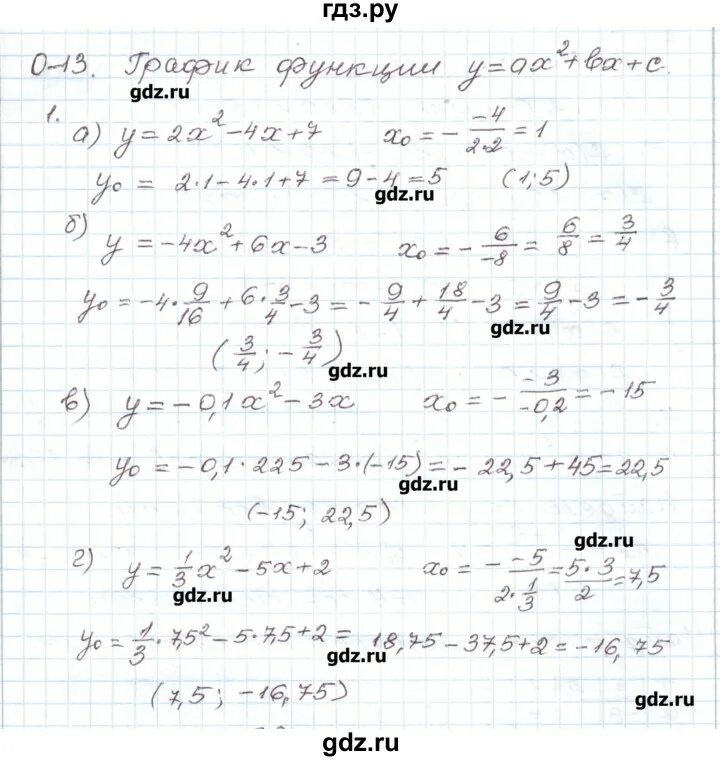 гдз.ру
О-13. График функции y=ax²+bx+c.
gdz.ru
1.
а) y=2x²-4x+7 x₀ = - -4/2·2 = 1
y₀ = 2·1-4·1+7=9-4=5 (1;5)
gdz.ru
б)
y=-4x²+6x-3 x₀ = - 6/-8 = 6/8 = 3/4
y₀ = -4·9/16+6·3/4-3 = -9/4+18/4-3 = 9/4-3 = -3/4
gdz.ru
(3/4; -3/4)
gdz.ru
в) y=-0,1x²-3x x₀ = - -3/-0,2 = -15
y₀ = -0,1·225-3·(-15) = -22,5+45=22,5
gdz.ru
(-15; 22,5)
gdz.ru
г) y=1/3x²-5x+2 x₀ = - -5/2·1/3 = 5·3/2 = 7,5
gdz.ru
y₀=1/3·7,5²-5·7,5+2= 18,75-37,5+2=-16,75
gdz.ru
(7,5; -16,75)
gdz.ru
gdz.ru